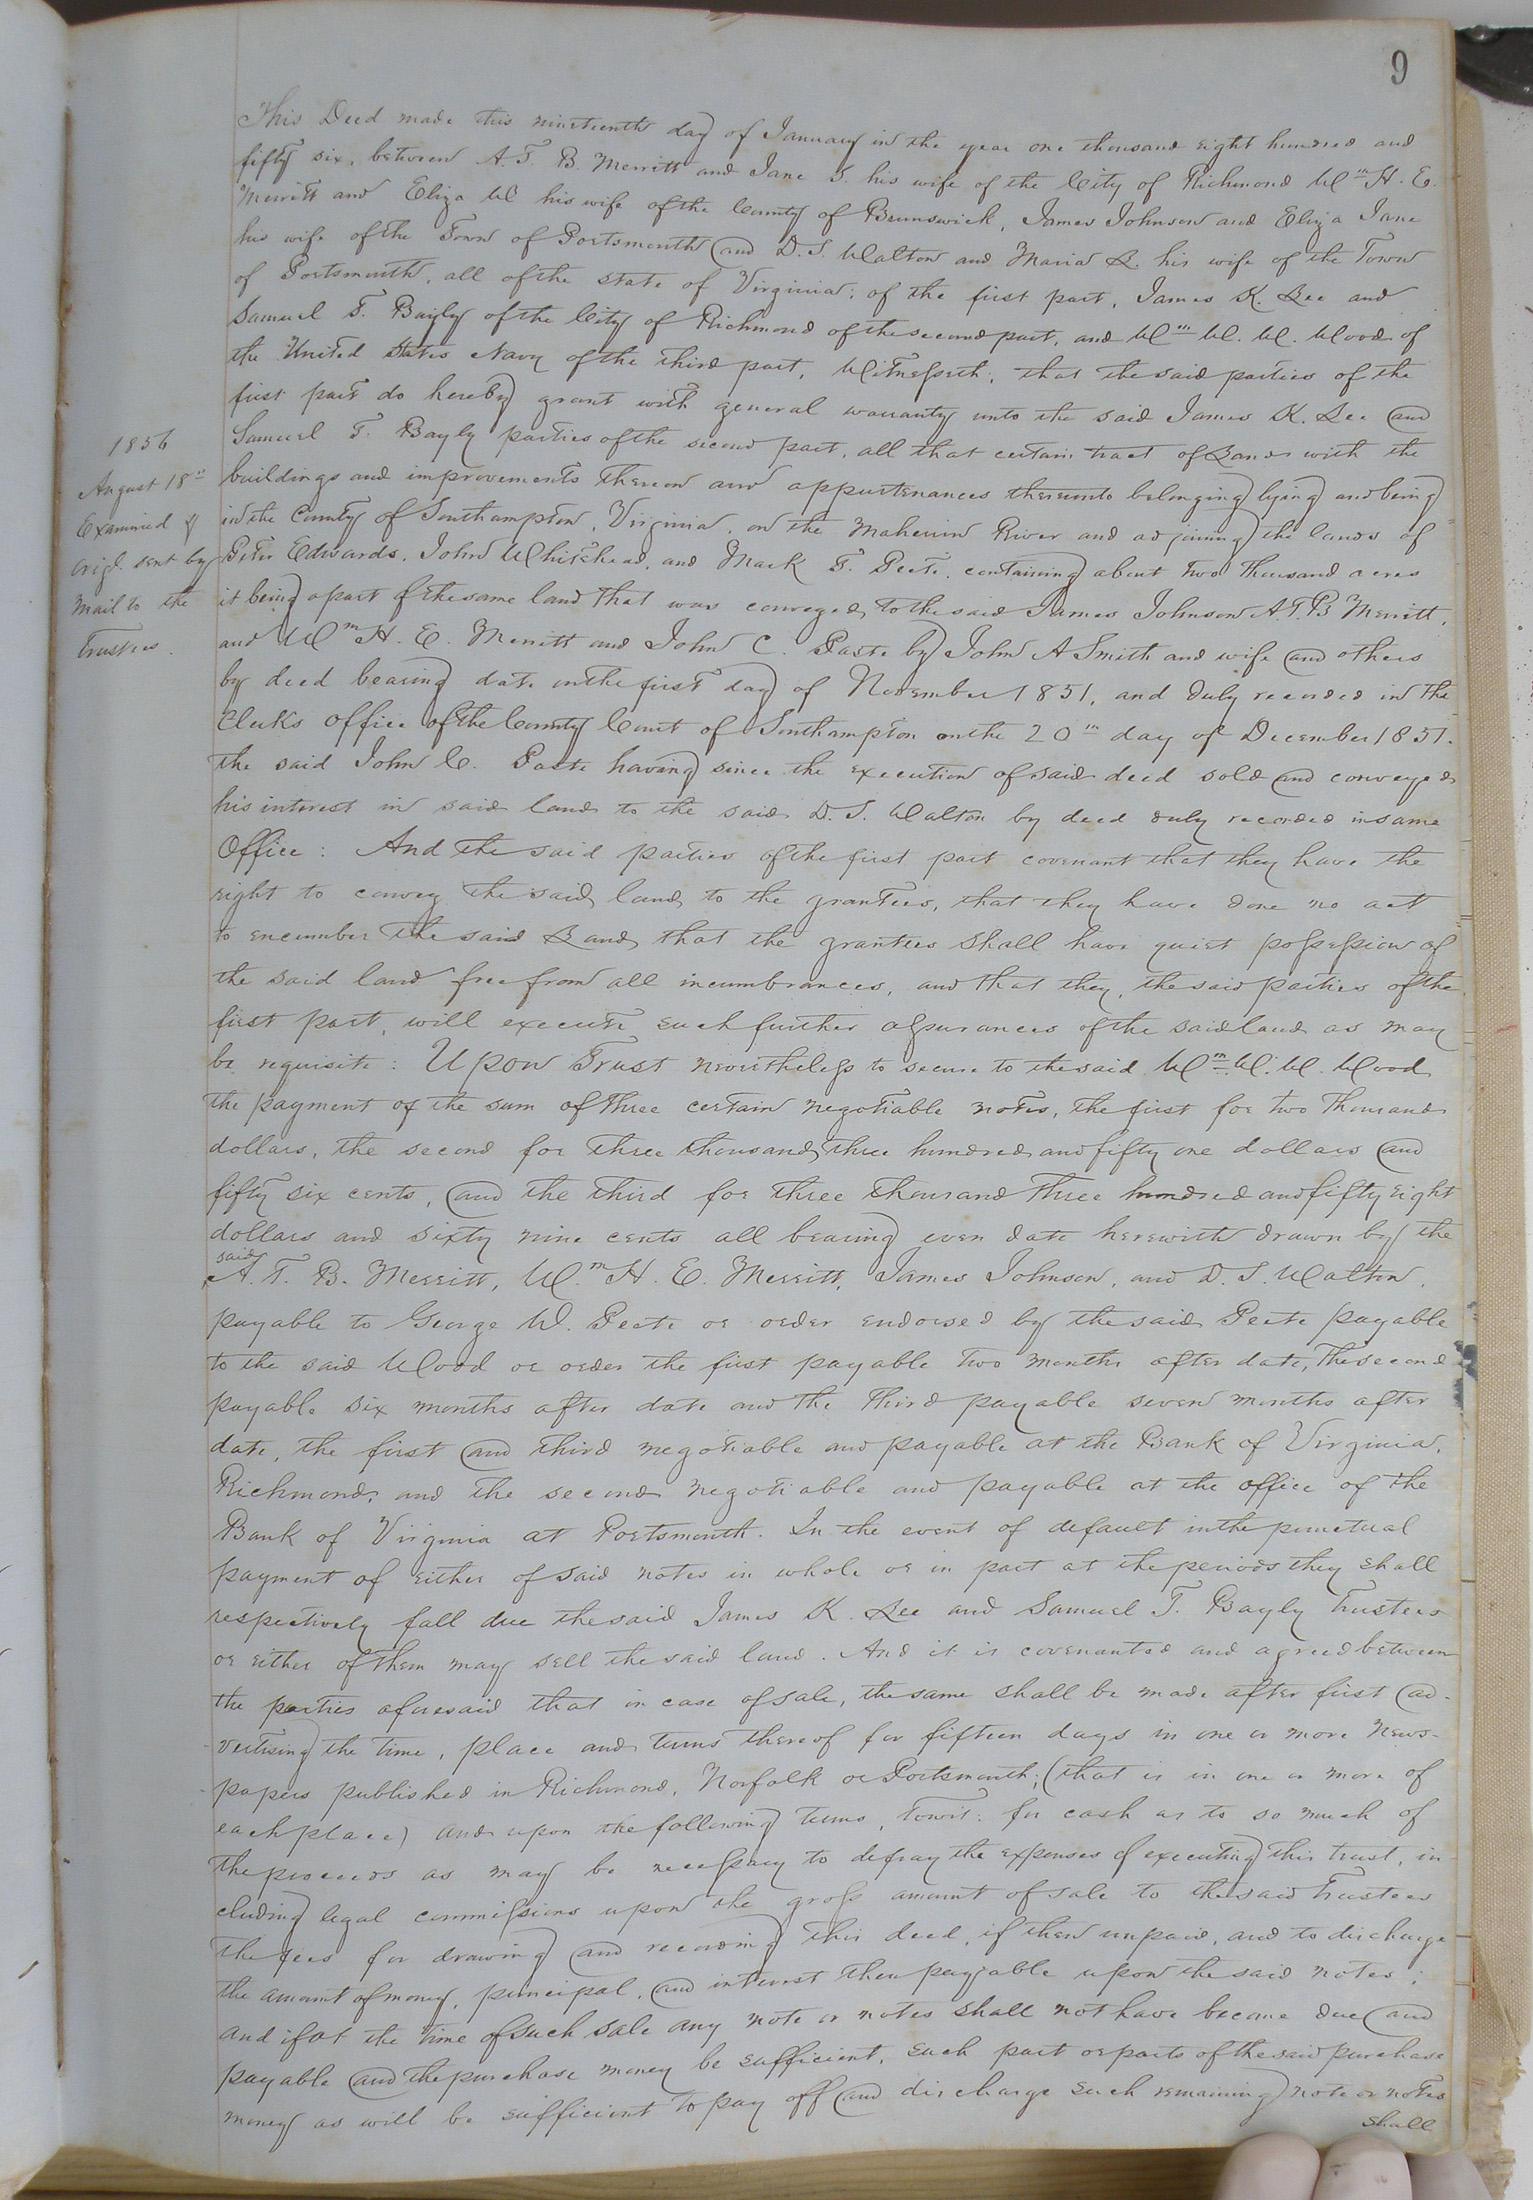 9
This Deed made this nineteenth day of January in the year one thousand eight hundred and
fifty six, between A. T. B. Merritt and Jane S. his wife of the City of Richmond Wm H. E.
Merritt and Eliza W his wife of the County of Brunswick, James Johnson and Eliza Jane
his wife of the Town of Portsmouth and D. S. Walton and Maria L. his wife of the Town
of Portsmouth, all of the state of Virginia; of the first part, James K. Lee and
Samuel T. Bayly of the City of Richmond of the second part, and Wm W. W. Wood of
the United States Navy of the third part, Witnesseth, that the said parties of the
first part do hereby grant with general warranty unto the said James K. Lee and
Samuel T. Bayly parties of the second part, all that certain tract of Land with the
buildings and improvements thereon and appurtenances thereunto belonging lying and being
in the County of Southampton, Virginia, on the Meherrin River and adjoining the lands of
Peter Edwards, John Whitehead, and Mack T. Peete, containing about two thousand acres
it being a part of the same land that was conveyed to the said James Johnson A. T. B Merritt,
and Wm H. E. Merritt and John C. Paste by John A Smith and wife and others
by deed bearing date on the first day of November 1851, and duly recorded in the
Clerks Office of the County Court of Southampton on the 20th day of December 1851.
the said John C. Paste having since the execution of said deed sold and conveyed
his interest in said land to the said D. S. Walton by deed duly recorded in same
Office: And the said parties of the first part covenant that they have the
right to convey the said land to the grantees, that they have done no act
to encumber the said Land, that the grantees shall have quiet possession of
the said land free from all incumbrances, and that they, the said parties of the
first part, will execute such further assurances of the said land as may
be requisite: Upon Trust nevertheless to secure to the said Wm W. W. Wood
the payment of the sum of three certain negotiable notes, the first for two thousand
dollars, the second for three thousand three hundred and fifty one dollars and
fifty six cents, and the third for three thousand three hundred and fifty eight
dollars and sixty nine cents all bearing even date herewith drawn by the
said
A. T. B. Merritt, Wm H. E. Merritt, James Johnson, and D. S. Walton,
payable to George W. Peete or order endorsed by the said Peete payable
to the said Wood or order the first payable two months after date, the second
payable six months after date and the third payable seven months after
date, the first and third negotiable and payable at the Bank of Virginia,
Richmond, and the second negotiable and payable at the office of the
Bank of Virginia at Portsmouth. In the event of default in the punctual
payment of either of said notes in whole or in part at the periods they shall
respectively fall due the said James K. Lee and Samuel T. Bayly Trustees
or either of them may sell the said land. And it is covenanted and agreed between
the parties aforesaid that in case of sale, the same shall be made after first ad-
vertising the time, place and terms thereof for fifteen days in one or more News-
papers published in Richmond, Norfolk or Portsmouth; (that is in one or more of
each place) and upon the following terms, Towit: for cash as to so much of
the proceeds as may be necessary to defray the expenses of executing this trust, in
cluding legal commissions upon the gross amount of sale to the said Trustees
the fees for drawing and recording this deed, if then unpaid, and to discharge
the amount of money, principal, and interest then payable upon the said notes;
and if at the time of such sale any note or notes shall not have become due and
payable and the purchase money be sufficient, such part or parts of the said purchase
money as will be sufficient to pay off and discharge such remaining note or notes
shall
1856
August 18th
Examined &
origl. sent by
mail to the
Trustees.